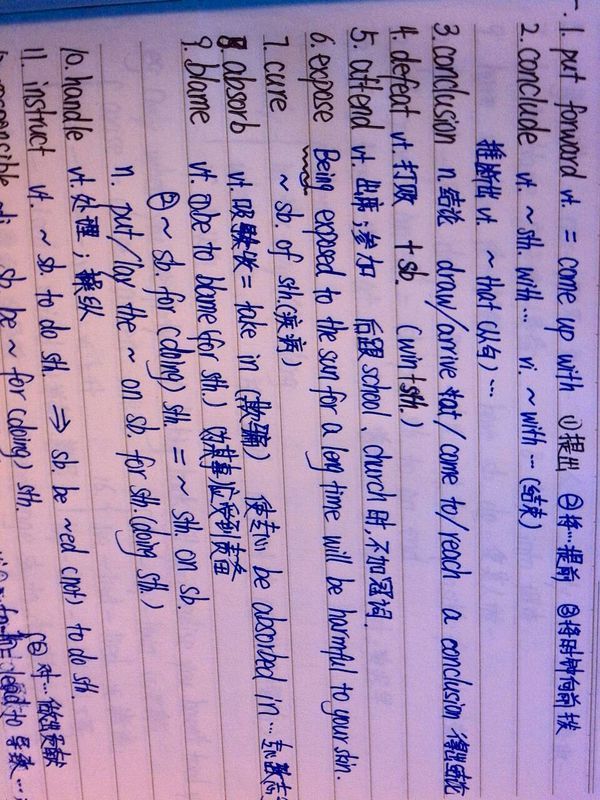 一. 1. put forward vt. = come up with ①提出 ②将…提前 ③将时钟向前拨
2. conclude vt. ~ sth. with … vi. ~ with … (结束)
推断出 vt. ~ that (从句) …
3. conclusion n. 结论 draw/arrive at/come to/reach a conclusion 得出结论
4. defeat vt. 打败 + sb. (win + sth.)
5. attend vt. 出席;参加 后跟 school、church 时,不加冠词
6. expose Being exposed to the sun for a long time will be harmful to your skin.
7. cure ~ sb. of sth. (疾病)
8. absorb vt. 吸收 = take in (欺骗) 使专心 be absorbed in …
9. blame vt. ① be to blame (for sth.) 因某事应受到责备
② ~ sb. for (doing) sth. = ~ sth. on sb.
n. put/lay the ~ on sb. for sth. (doing sth.)
10. handle vt. 处理;
11. instruct vt. ~ sb. to do sth ⇒ sb. be ~ed (not) to do sth.
sb. be ~ for (doing) sth.
对…做出贡献
lead to 导致…